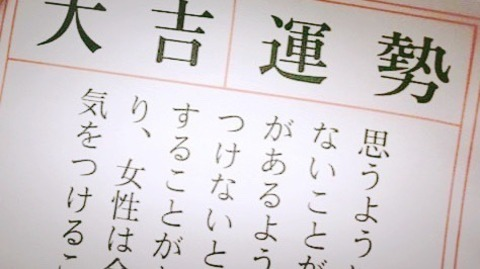 大吉運勢
思うよう
ないことが
があるよう
つけないと
することが
り、女性は
気をつけるこ